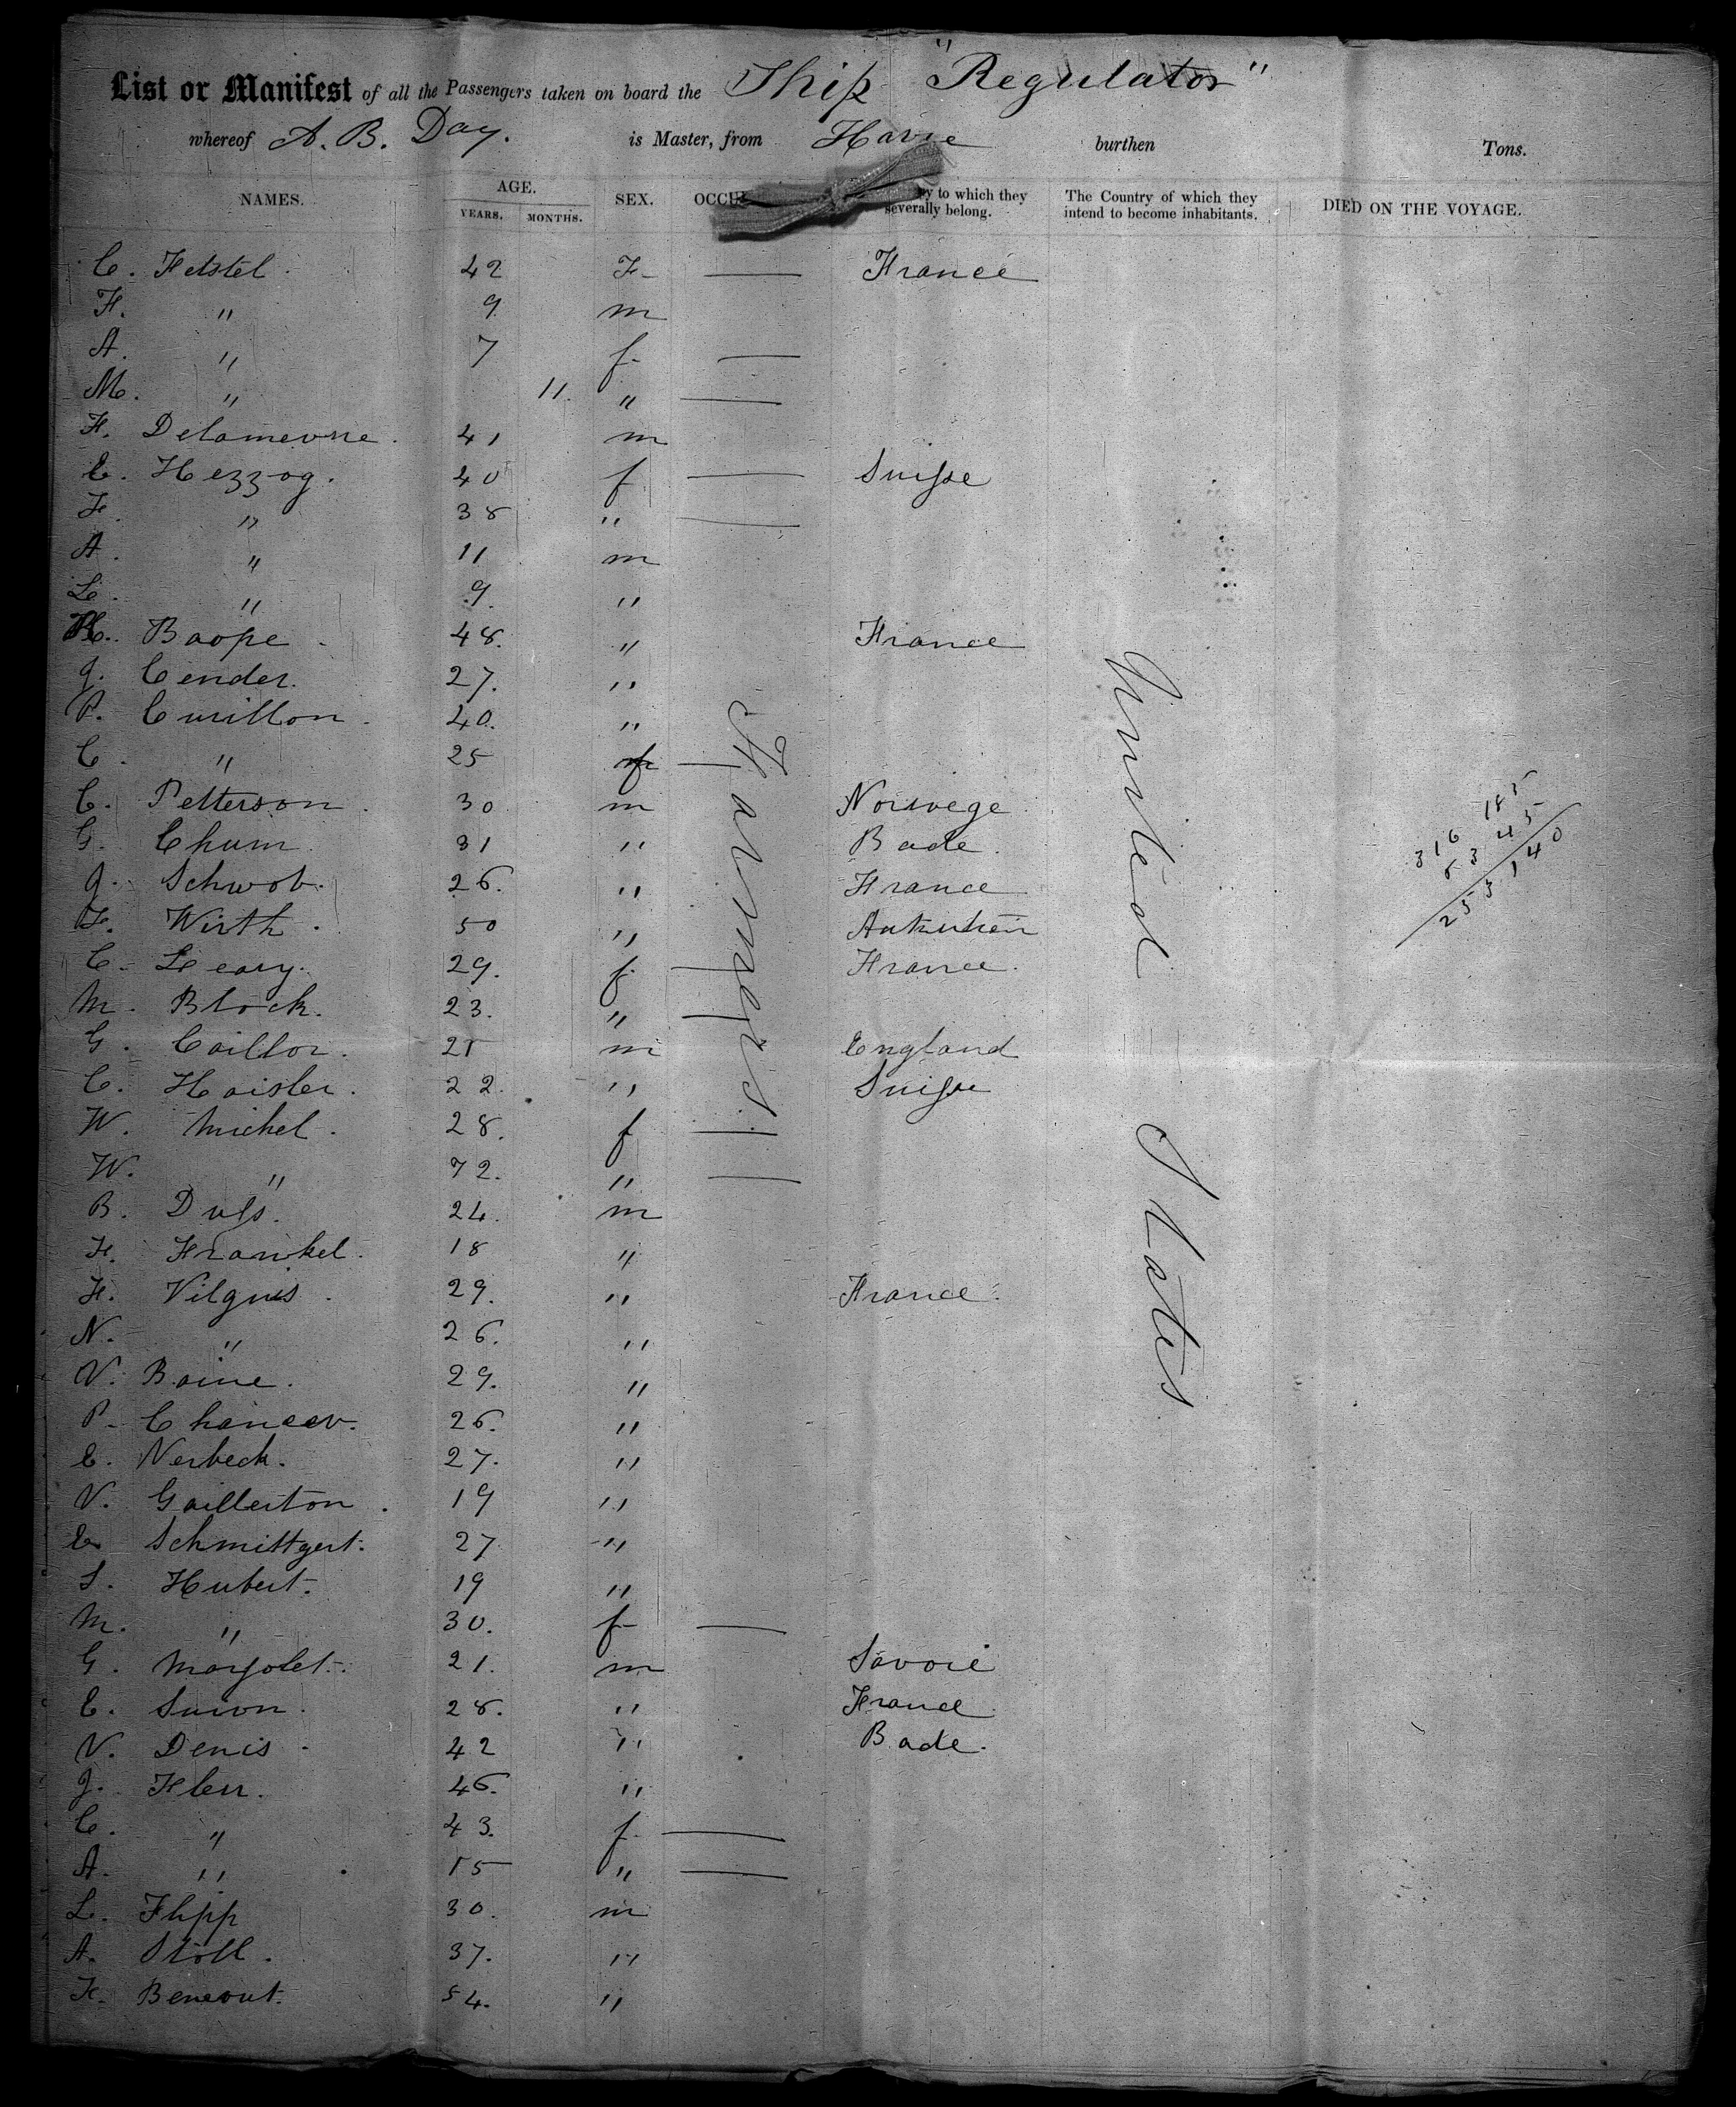 List or Manifest of all the Passengers taken on board the Ship "Regulator"
whereof A. B. Day. is Master, from Havre burthen Tons.
NAMES. AGE. YEARS. MONTHS. SEX. OCCU y to which they severally belong. The Country of which they intend to become inhabitants. DIED ON THE VOYAGE.
C. Fetstel. 42 F- — France
F. " 9 m
A. " 7 f- —
M. " 11. " —
F. Delamevne. 41 m
E. Hezzog. 40 f — Suisse
F. " 38 " —
A. " 11 m
L. " 9. "
H. Baope 48. " France
J. Cender. 27. "
P. Curillon. 40. "
C. " 25 f —
C. Petterson. 30 m Norwege
G. Chum. 31 " Bade.
J. Schwob. 26. " France
F. Wirth. 50 "
C. Leavy. 29. f. — France.
M. Block. 23. " —
G. Caillor. 21 m England
C. Haisler. 22. " Suisse
W. Michel. 28. f —
W. " 72. " —
B. Duss. 24. m
F. Frankel. 18 "
F. Vilguis. 29. " France.
N. " 26. "
V. Baine. 29. "
P. Chancev. 26. "
E. Nerbeck. 27. "
V. Gaillerton. 19 "
E Schmittgert. 27 "
S. Hubert. 19 "
M. " 30. f- —
G. Marjolet. 21. m Savoie
E. Simon. 28. " France
V. Denis. 42 " Bade.
J. Flerr. 46. "
C. " 43. f. —
A. " 15 " —
L. Flipp 30. m
A. Stoll. 37. "
F. Beneout. 54. "
Farmers
United States
316 185
63 45
253 140